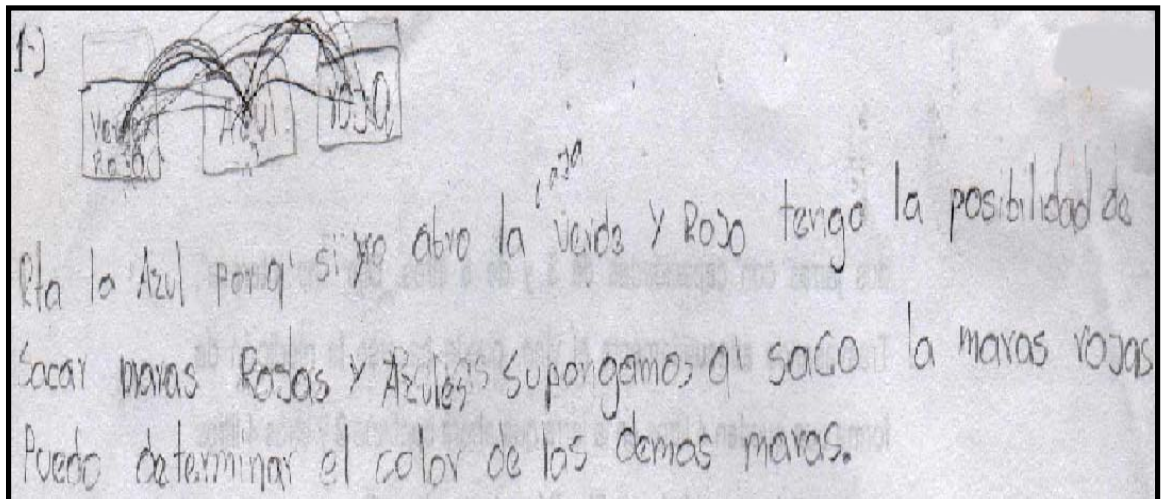 1-)
Verde Azul Rojo
Rojo
Rta la Azul porq' si yo abro la caja Verde y Rojo tengo la posibilidad de
Sacar maras Rojas y Azules supongamos q' saco la maras rojas
Puedo determinar el color de las demas maras.